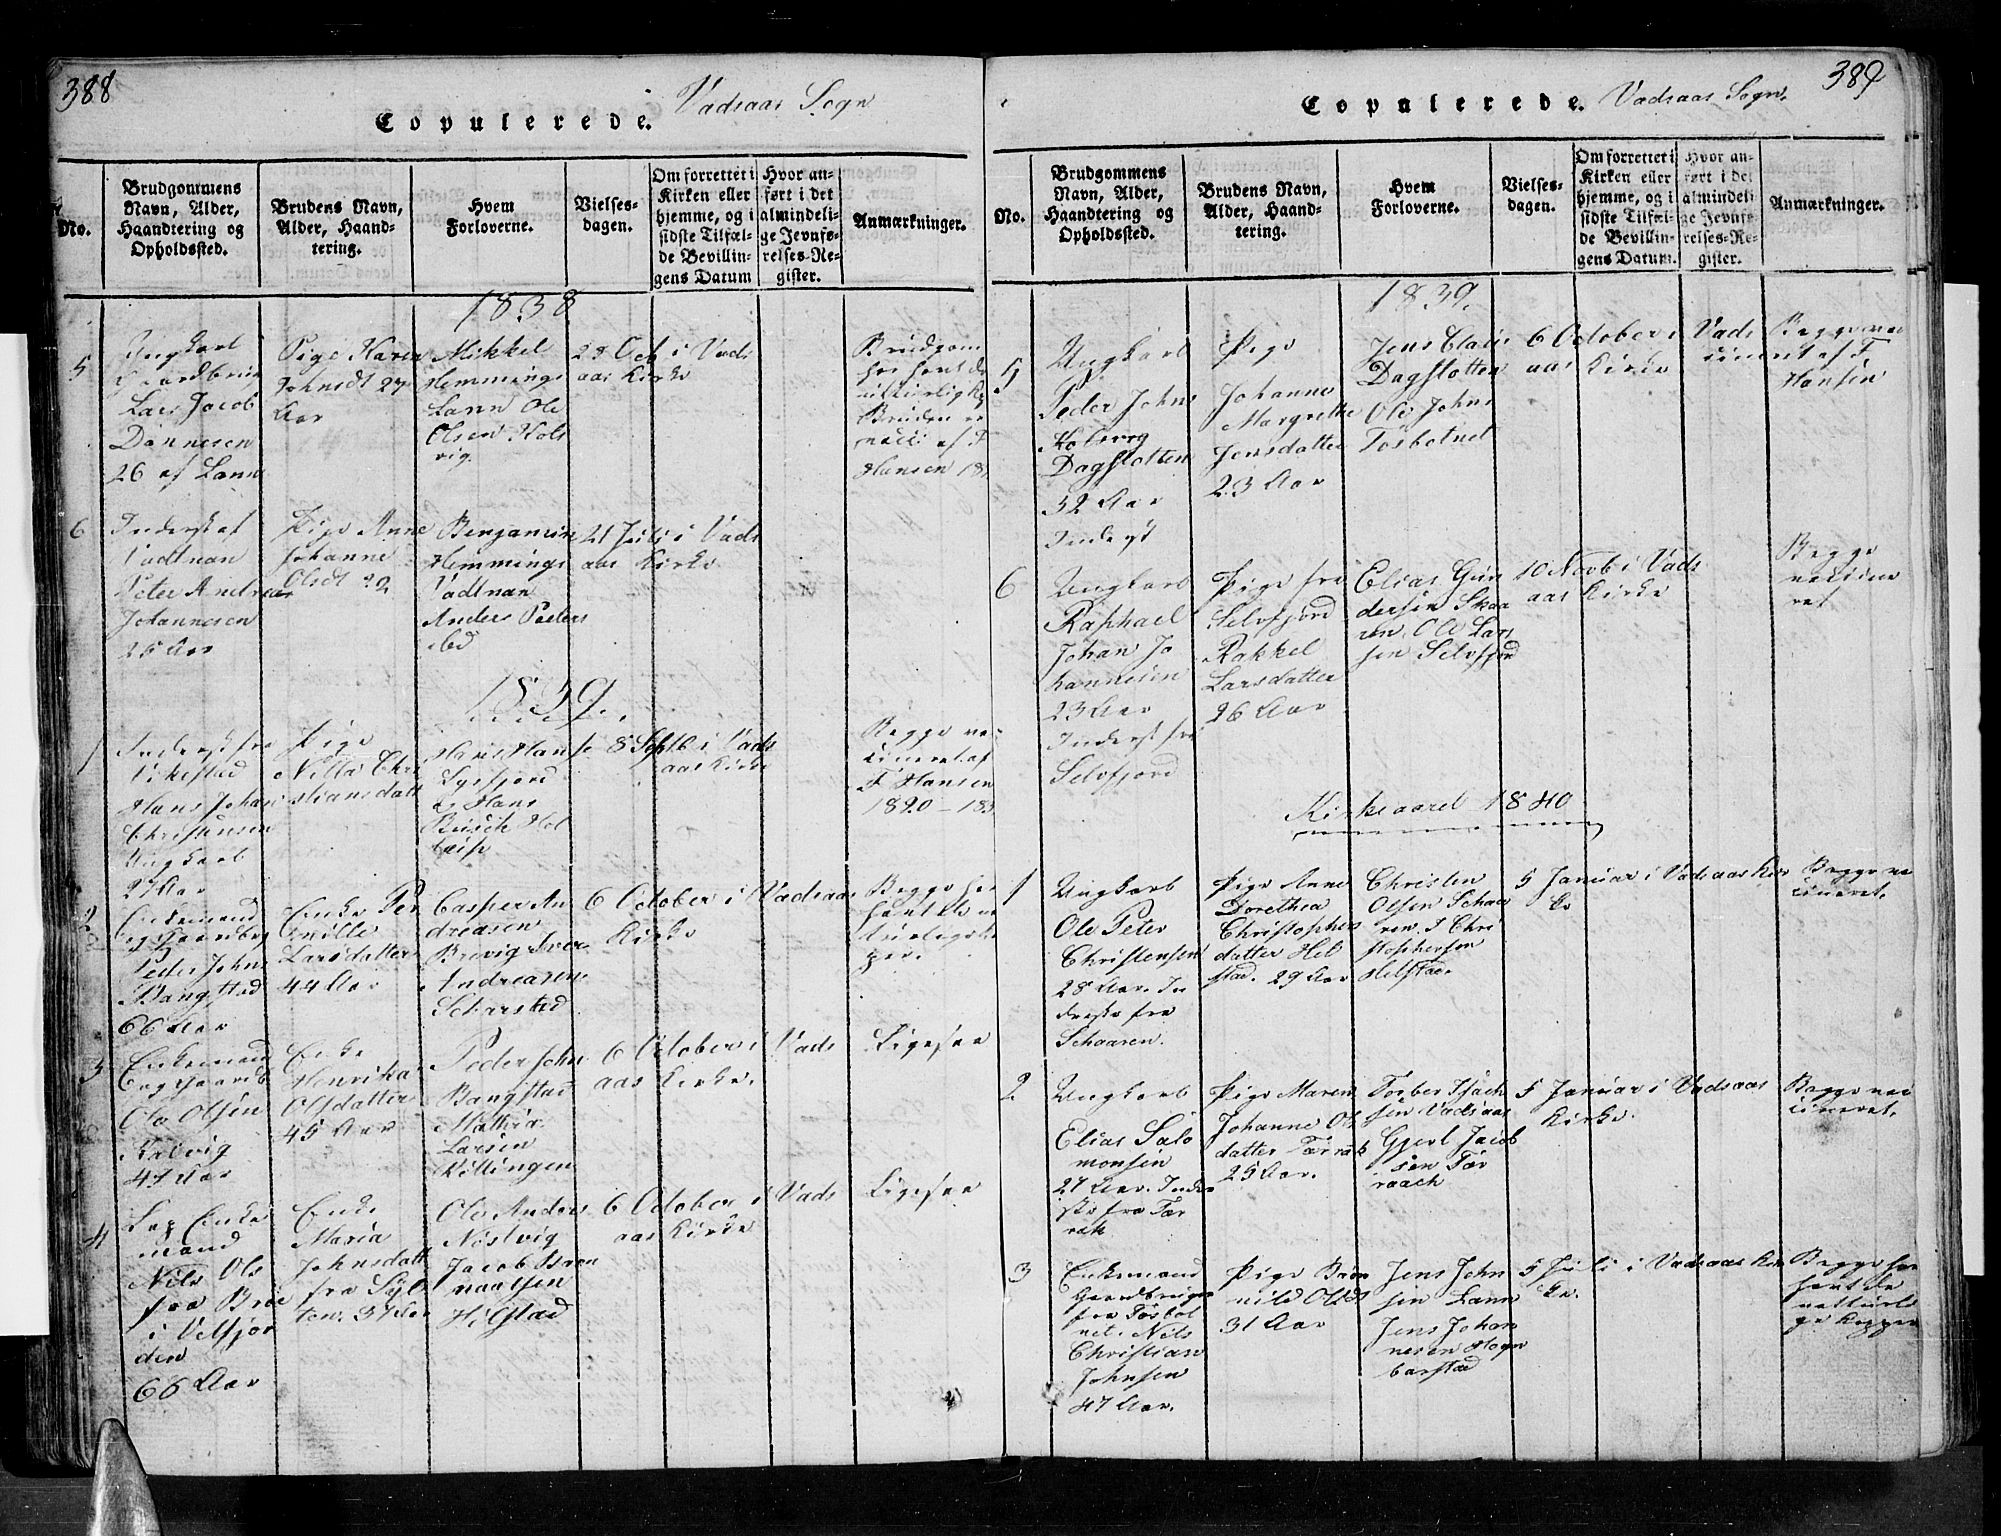 388
Copulerede. Vadsaas Sogn
No.
Brudgommens
Navn, Alder,
Haandtering og
Opholdssted.
Brudens Navn,
Alder, Haand-
tering.
Hvem
Forloverne.
Vielses-
dagen.
Om forrettet i
Kirken eller
hjemme, og i
sidste Tilfæl-
de Bevillin-
gens Datum
Hvor an-
ført i det
almindeli-
ge Jevnfø-
relses-Re-
gister.
Anmærkninger.
1838
5
Ungkarl
Lars Jacob
Dønnesen
26 af Lann
Pige Karen
Johnsdt 27
Aar
Mikkel
Hemmings
Lann Ole
Olsen Hols
vig.
28 Oct i Vads
aas Kirke
Brudgom
Bruden er
af F
Hansen
6
Inderst af
Vadtnan
Peter Andreas
Johannesen
25 Aar
Pige Anne
Johanne
Olsdt 22
Benjamin
Hemmings
Vadtnan
Anders Peders
ibd
21 Juli i Vads
aas Kirke
1839.
1
Inderst fra
Hans Johan
Christensen
Ungkarl
27 Aar
Pige
Nilla Chri
stiansdatt
Hans Hans
Lysfjord
Hans
Busch Hol
8 Septb i Vads
aas Kirke
Begge vac
cineret af
F Hansen
1820 - 183
2
Enkemand
og Gaardbr
Peder Johns
Bangstad
66 Aar
Enke Per
nille
Larsdatter
44 Aar
Casper An
dreasen
Brevig Iver
Andreasen
Skarstad
6 October i Vadsaas
Kirke
Begge ha
turlige Ko
per.
3
Enkemand
og Gaardb
Ole Olsen
Kalvig
47 Aar
Enke
Henrika
Olsdatter
45 Aar
Peder John
Bangstad
Mathia
Larsen
Killingen
6 October i Vads
aas Kirke.
Ligesaa
4
Lap Enke
mand
Nils Ols
fra Bræ
i Velfjor
den
66 Aar
Enke
Maria
Johnsdatt
fra
ten. 37 Aar
Ole Anders
Nøstvig
Jacob Bren
natsen
Hilstad
6 October i Vads
aas Kirke
Ligesaa
389
Copulerede. Vadsaas Sogn.
No.
Brudgommens
Navn, Alder,
Haandtering og
Opholdssted.
Brudens Navn,
Alder, Haand-
tering.
Hvem
Forloverne.
Vielses-
dagen.
Om forrettet i
Kirken eller
hjemme, og i
sidste Tilfæl-
de Bevillin-
gens Datum.
Hvor an-
ført i det
almindeli-
ge Jevnfø-
relses-Re-
gister.
Anmærkninger.
1839.
5
Ungkarl
Peder Johns
Dagslotten
32 Aar
Inderst
Pige
Johanne
Margrethe
Jensdatter
23 Aar
Jens Clausi
Dagslotten
Ole Johns
Tosbotnet
6 October i Vads
aas Kirke
Begge vac
cineret af F.
Hansen
6
Ungkarl
Raphael
Johan Jo
hannesen
23 Aar
Inderst fra
Selvfjord
Pige fra
Selvfjord
Rakkel
Larsdatter
26 Aar
Elias Gun
dersen Skaa
ren. Ole Lars
sen Selvfjord
10 Novb i Vads
aas Kirke
Begge
vaccine
ret
Kirkeaaret 1840
1
Ungkarl
Ole Peter
Christensen
28 Aar. In
derste fra
Schaaren.
Pige Anne
Dorethea
Christophers
datter Hel
stad. 29 Aar
Christen
Olsen Schaa
ren. I Chri
stophersen
Helstad.
5 Januar i Vadsaas Kir
ke
Begge va
cineret.
2
Ungkarl
Elias Salo
monsen
27 Aar. Inder
ste fra Tær
rak
Pige Maren
Johanne Ols
datter Tærrak
25 Aar.
Torber Isach
sen Vadsaas
Gjert Jacob
sen Tær
raach
5 Januar i Vadsaas
Kirke.
Begge vac
cineret.
3
Enkemand
Gaardbruger
fra Tosbot
net. Nils
Christian
Johnsen
47 Aar.
Pige Brön
nild Olsdt
31 Aar
Jens John
sen Lann
Jens Johan
nesen Hogn
barstad
5 Juli i Vadsaas Kir
ke.
Begge ha
havt de
natturli
ge Kopper